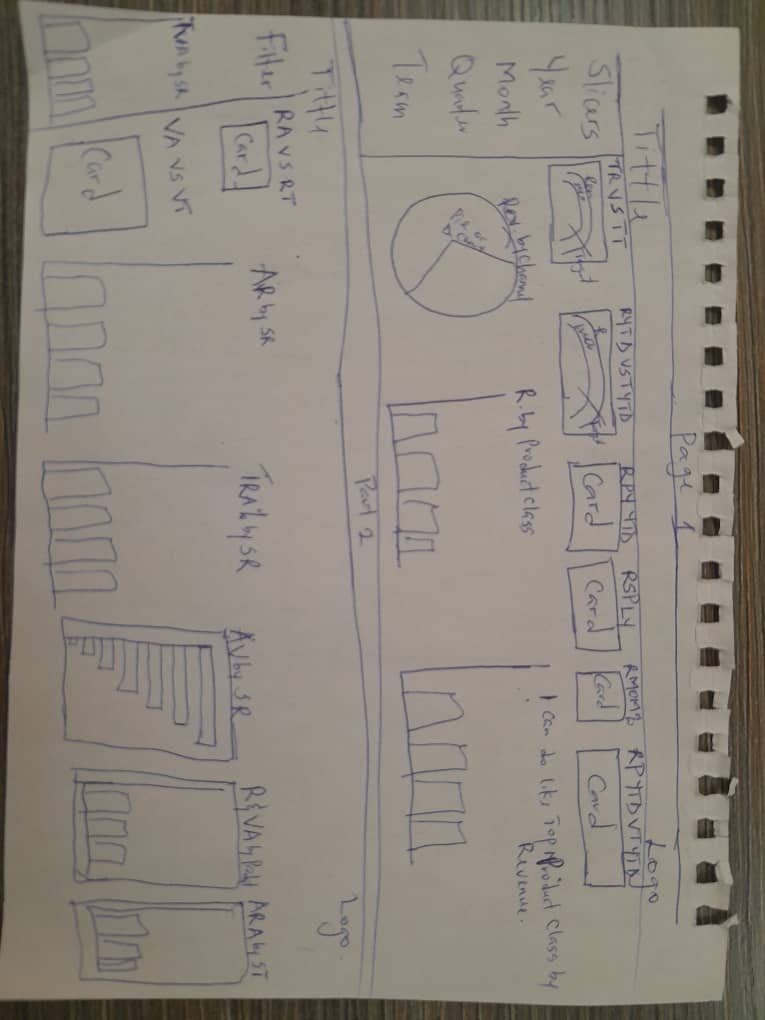 Page 1
Tittle
Logo
Slicers
Year
Month
Quarter
Team
TR VS TT
Target
RYTD VS TYTD
Target
RPY YTD
Card
RSPLY
Card
RMOM%
Card
RPYTD VTYTD
Card
Rev. by Channel
R. by Product Class
I Can do like Top N Product Class by
Revenue.
Part 2
Tittle
Logo
Filter
RA VS RT
Card
TVA by SR
VA VS VT
Card
AR by SR
TRA% by SR
AV by SR
R & VA by
ARA by ST